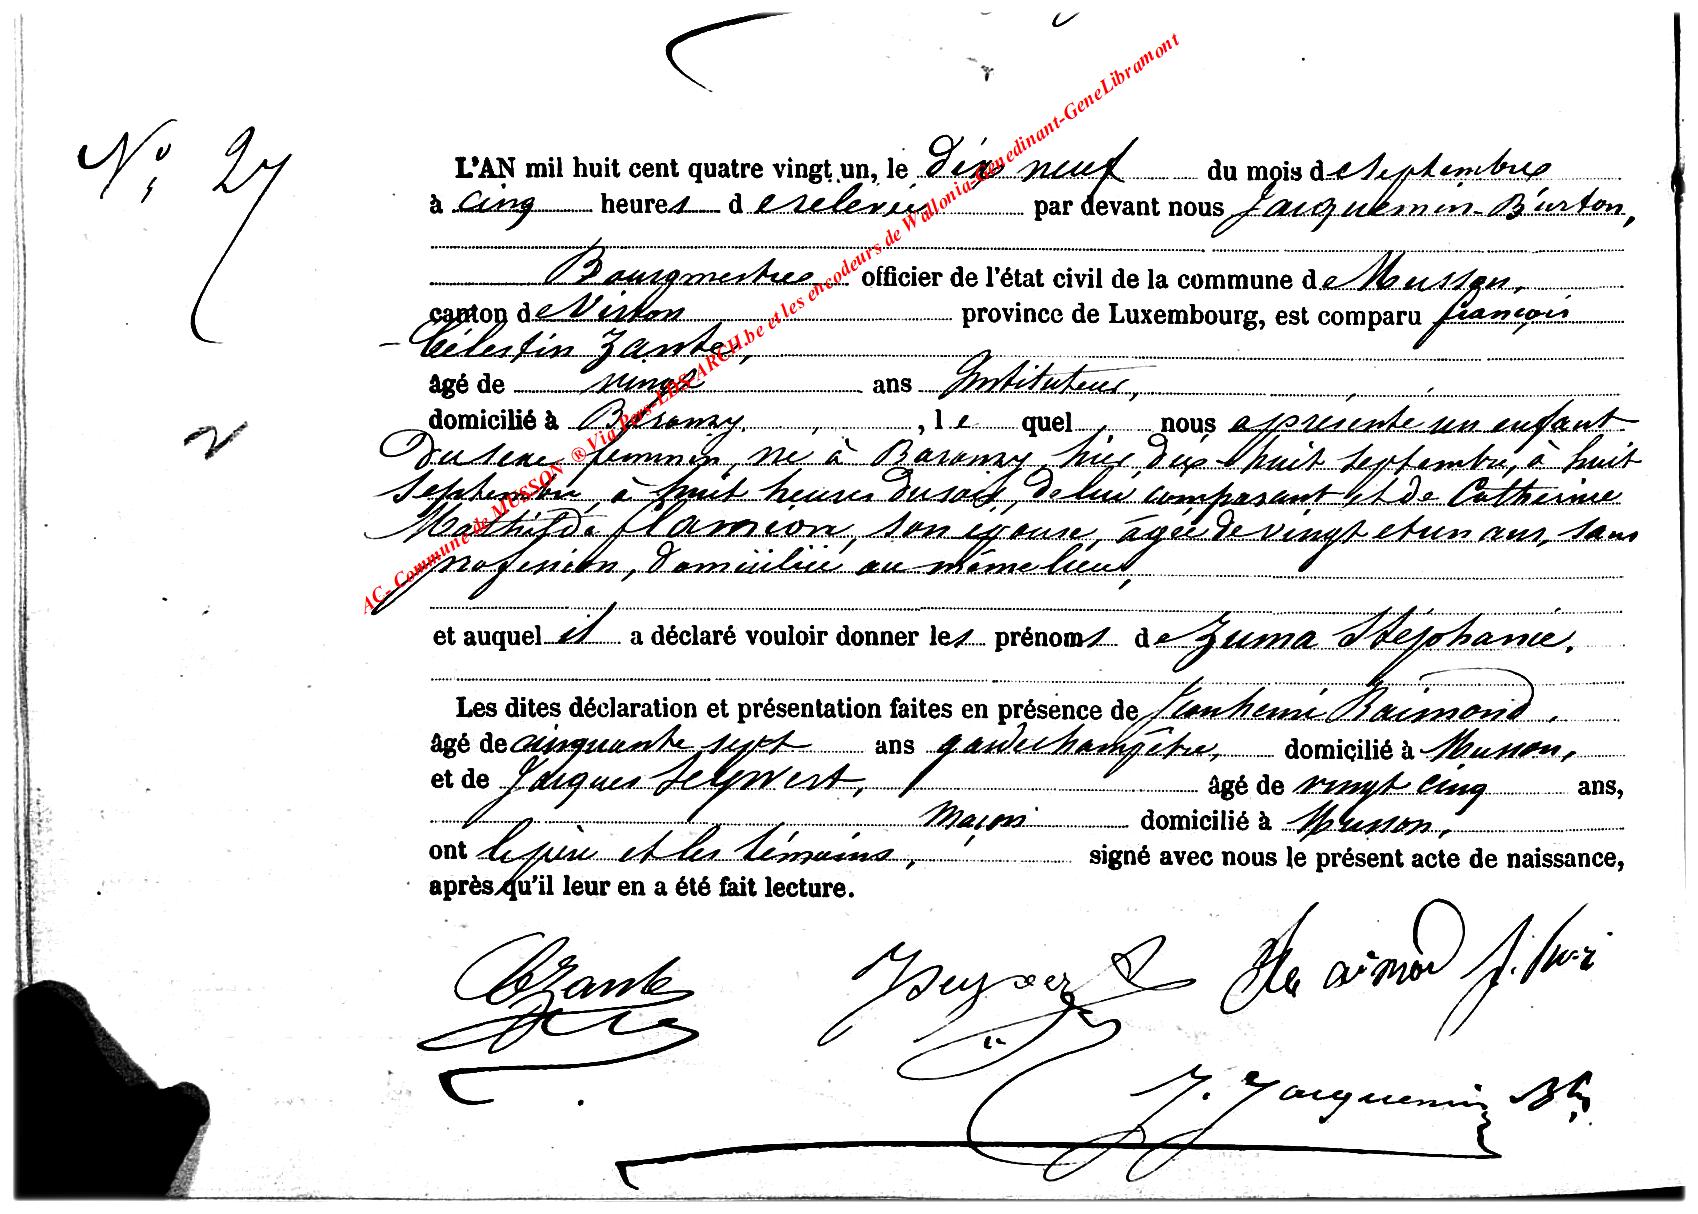 N° 27
L'AN mil huit cent quatre vingt un, le dix neuf du mois de septembre
à cinq heures de relevée par devant nous Jacquemin-Burton,
Bourgmestre officier de l'état civil de la commune de Musson,
canton de Virton province de Luxembourg, est comparu françois
Célestin Zante,
âgé de vingt ans Instituteur,
domicilié à Baranzy, , le quel nous a présenté un enfant
du sexe féminin, né à Baranzy hier dix-huit septembre, à huit
septembre, à huit heures du soir, de lui comparant et de Catherine
Mathilde Clamion, son épouse, âgée de vingt et un ans, sans
profession, domiciliée au même lieu,
et auquel il a déclaré vouloir donner les prénoms de Zuma Stéphanie.
Les dites déclaration et présentation faites en présence de Jean henri Raimond,
âgé de cinquante sept ans garde champêtre, domicilié à Musson,
et de Jacques Seywert, âgé de vingt cinq ans,
maçon domicilié à Musson,
ont le père et les témoins, signé avec nous le présent acte de naissance,
après qu'il leur en a été fait lecture.
CZante
J. Jacquemin
AC- Commune de MUSSON ® Via Pers-LDS-ARCH.be et les encodeurs de Wallonia-Genedinant-GeneLibramont